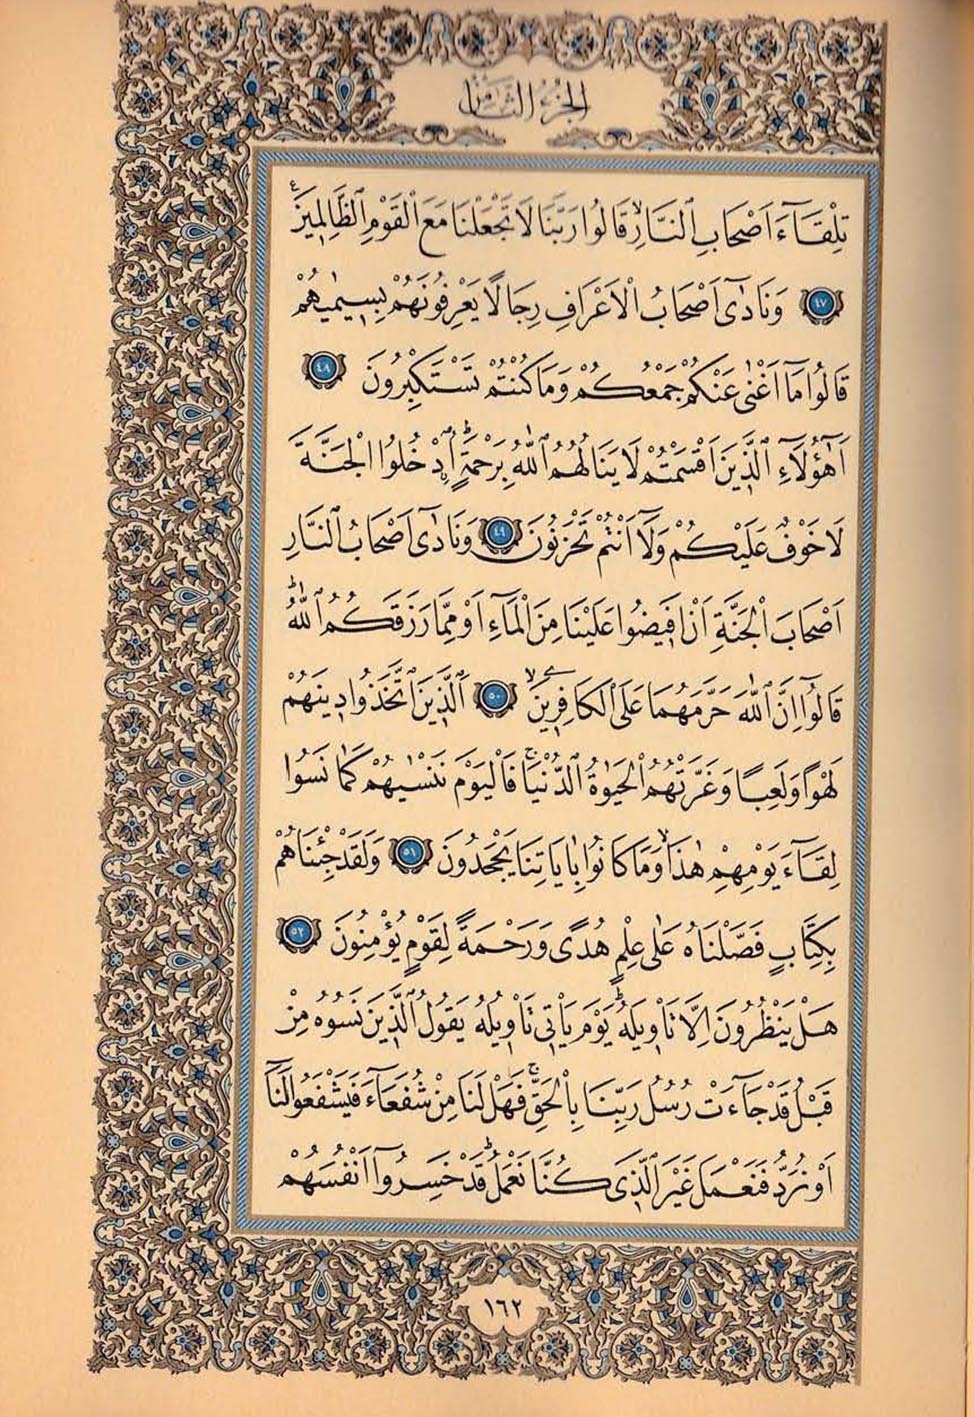 الجزء الثامن
تِلْقَٓاءَ اَصْحَابِ النَّارِۙ قَالُوا رَبَّنَا لَا تَجْعَلْنَا مَعَ الْقَوْمِ الظَّالِم۪ينَ۟
﴿٤٧﴾ وَنَادٰٓى اَصْحَابُ الْاَعْرَافِ رِجَالًا يَعْرِفُونَهُمْ بِس۪يمٰيهُمْ
قَالُوا مَٓا اَغْنٰى عَنْكُمْ جَمْعُكُمْ وَمَا كُنْتُمْ تَسْتَكْبِرُونَ ﴿٤٨﴾
اَهٰٓؤُ۬لَٓاءِ الَّذ۪ينَ اَقْسَمْتُمْ لَا يَنَالُهُمُ اللّٰهُ بِرَحْمَةٍۜ اُدْخُلُوا الْجَنَّةَ
لَا خَوْفٌ عَلَيْكُمْ وَلَٓا اَنْتُمْ تَحْزَنُونَ ﴿٤٩﴾ وَنَادٰٓى اَصْحَابُ النَّارِ
اَصْحَابَ الْجَنَّةِ اَنْ اَف۪يضُوا عَلَيْنَا مِنَ الْمَٓاءِ اَوْ مِمَّا رَزَقَكُمُ اللّٰهُۜ
قَالُٓوا اِنَّ اللّٰهَ حَرَّمَهُمَا عَلَى الْكَافِر۪ينَۙ ﴿٥٠﴾ اَلَّذ۪ينَ اتَّخَذُوا د۪ينَهُمْ
لَهْوًا وَلَعِبًا وَغَرَّتْهُمُ الْحَيٰوةُ الدُّنْيَاۚ فَالْيَوْمَ نَنْسٰيهُمْ كَمَا نَسُوا
لِقَٓاءَ يَوْمِهِمْ هٰذَاۙ وَمَا كَانُوا بِاٰيَاتِنَا يَجْحَدُونَ ﴿٥١﴾ وَلَقَدْ جِئْنَاهُمْ
بِكِتَابٍ فَصَّلْنَاهُ عَلٰى عِلْمٍ هُدًى وَرَحْمَةً لِقَوْمٍ يُؤْمِنُونَ ﴿٥٢﴾
هَلْ يَنْظُرُونَ اِلَّا تَأْو۪يلَهُۜ يَوْمَ يَأْت۪ي تَأْو۪يلُهُ يَقُولُ الَّذ۪ينَ نَسُوهُ مِنْ
قَبْلُ قَدْ جَٓاءَتْ رُسُلُ رَبِّنَا بِالْحَقِّۚ فَهَلْ لَنَا مِنْ شُفَعَٓاءَ فَيَشْفَعُوا لَنَٓا
اَوْ نُرَدُّ فَنَعْمَلَ غَيْرَ الَّذ۪ي كُنَّا نَعْمَلُۜ قَدْ خَسِرُٓوا اَنْفُسَهُمْ
١٦٢